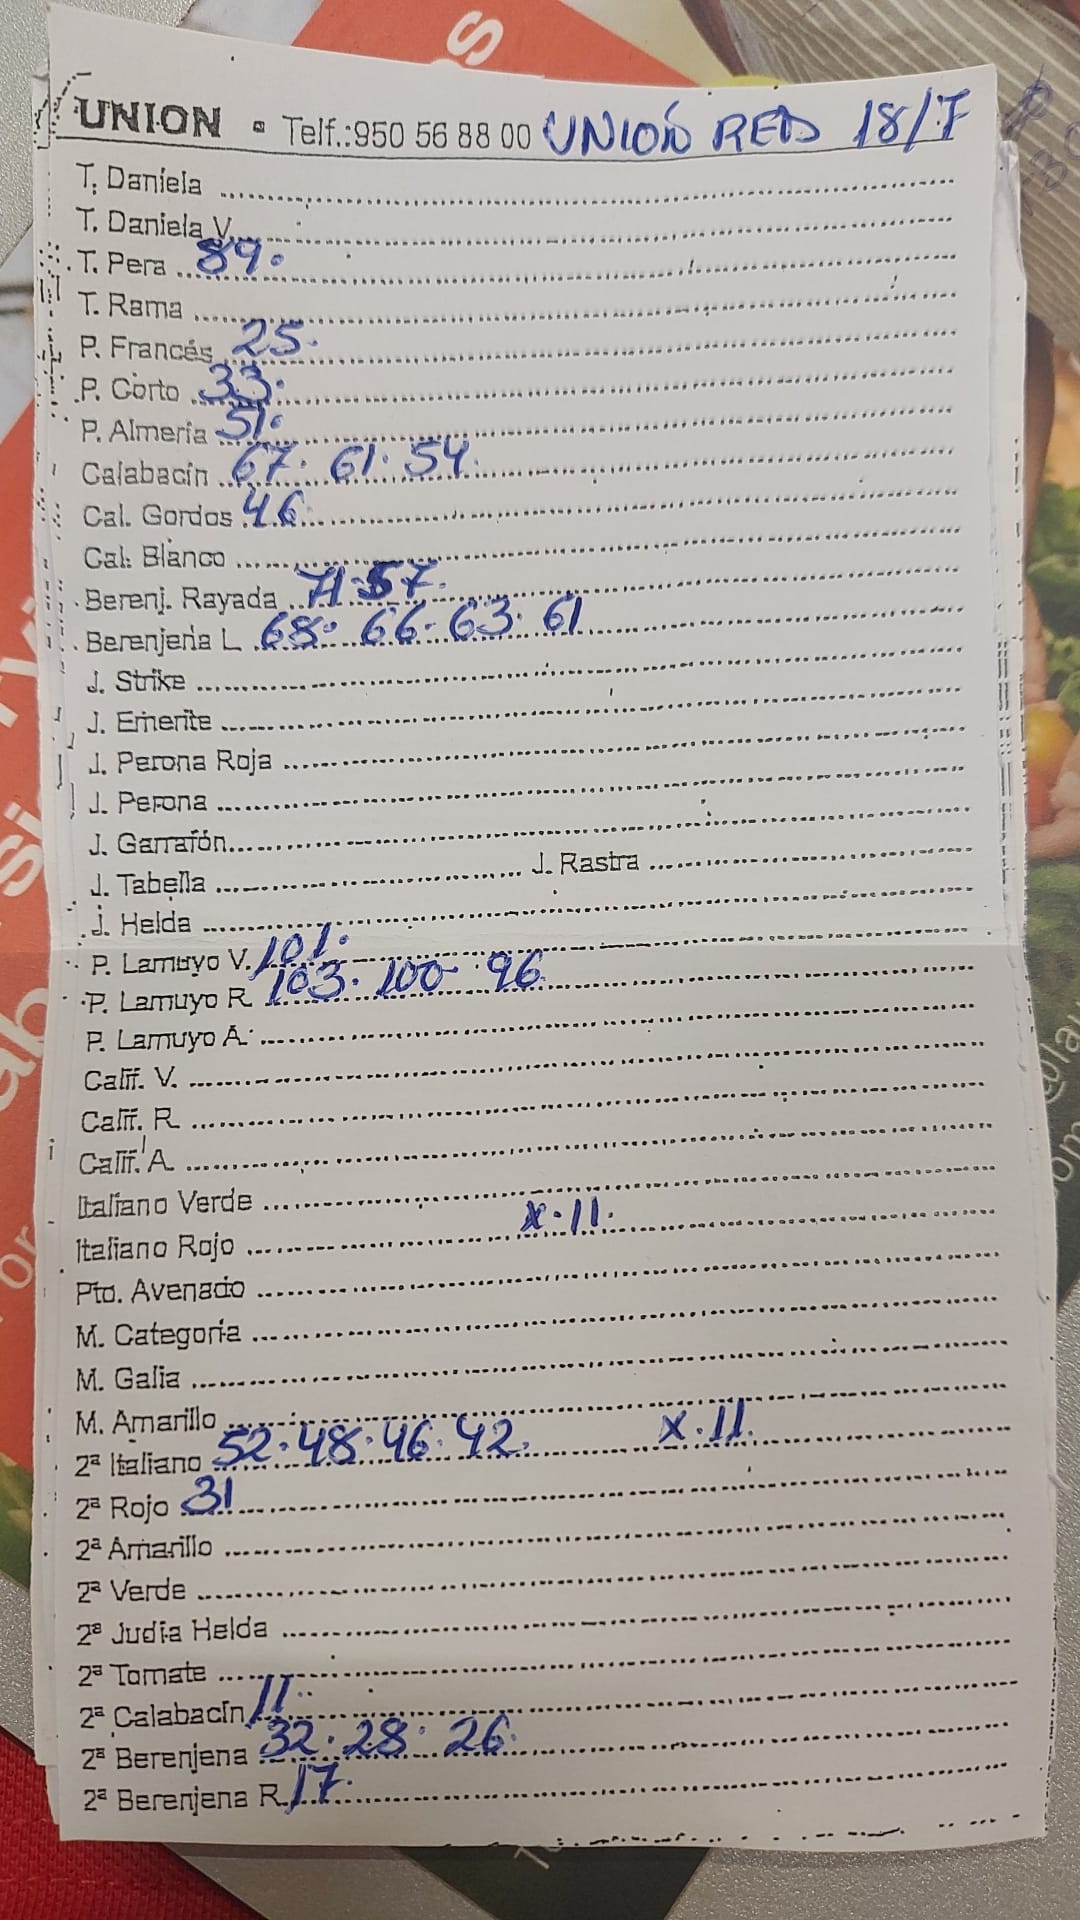 UNION • Telf.:950 56 88 00 UNIÓN RED 18/7
T. Daniela
T. Daniela V.
T. Pera 89.
T. Rama
P. Francés 25.
P. Corto 33.
P. Almería 51.
Calabacín 67. 61. 54.
Cal. Gordos 46.
Cal. Blanco
Berenj. Rayada 71.57.
Berenjena L 68. 66. 63. 61
J. Strike
J. Emerite
J. Perona Roja
J. Perona
J. Garrafón
J. Tabella J. Rastra
J. Helda
P. Lamuyo V. 101.
P. Lamuyo R. 103. 100. 96
P. Lamuyo A.
Calif. V.
Calif. R.
Calif. A.
Italiano Verde
Italiano Rojo x.11.
Pto. Avenado
M. Categoría
M. Galia
M. Amarillo
2ª Italiano 52.48.46.42. x.11.
2ª Rojo 31
2ª Amarillo
2ª Verde
2ª Judía Helda
2ª Tomate
2ª Calabacín 11.
2ª Berenjena 32.28.26.
2ª Berenjena R. 17.